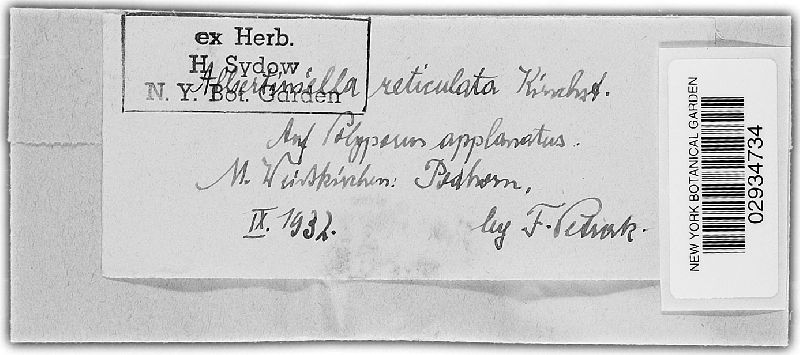 ex Herb.
H. Sydow
N. Y. Bot. Garden
Albertiniella reticulata Kirschst.
Auf Polyporus applanatus.
M. Weißkirchen: Podhorn,
IX. 1932. leg F. Petrak.
NEW YORK BOTANICAL GARDEN
02934734